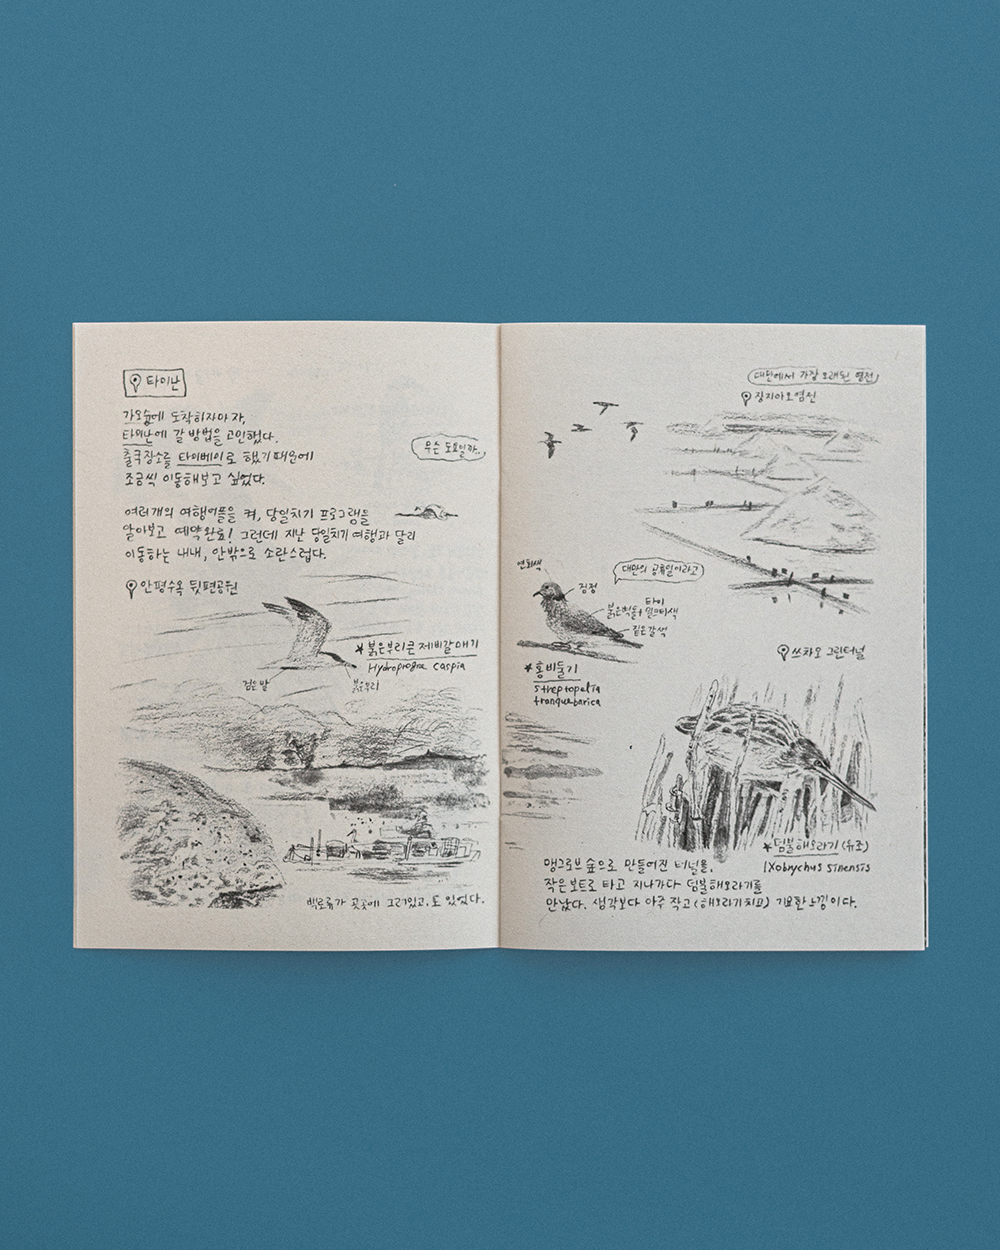 타이난
가오슝에 도착하자마자,
타이난에 갈 방법을 고민했다.
출국장소를 타이베이로 했기 때문에
조금씩 이동해보고 싶었다.
무슨 도요일까..
여러개의 여행어플을 켜, 당일치기 프로그램을
알아보고 예약완료! 그런데 지난 당일치기 여행과 달리
이동하는 내내, 안밖으로 소란스럽다.
안평수옥 뒷편공원
붉은부리큰제비갈매기
Hydroprogne caspia
검은발
붉은부리
백로류가 곳곳에 그려있고, 도 있었다.
대만에서 가장 오래된 염전
징지아오염전
연회색
대만의 공휴일이라고
검정
붉은벽돌+
짙은갈색
홍비둘기
Streptopelia
tranquebarica
쓰차오 그린터널
덤불해오라기 (유조)
Ixobrychus sinensis
맹그로브 숲으로 만들어진 터널을,
작은보트로 타고 지나가다 덤불해오라기를
만났다. 생각보다 아주 작고 (해오라기치고) 기묘한 느낌이다.